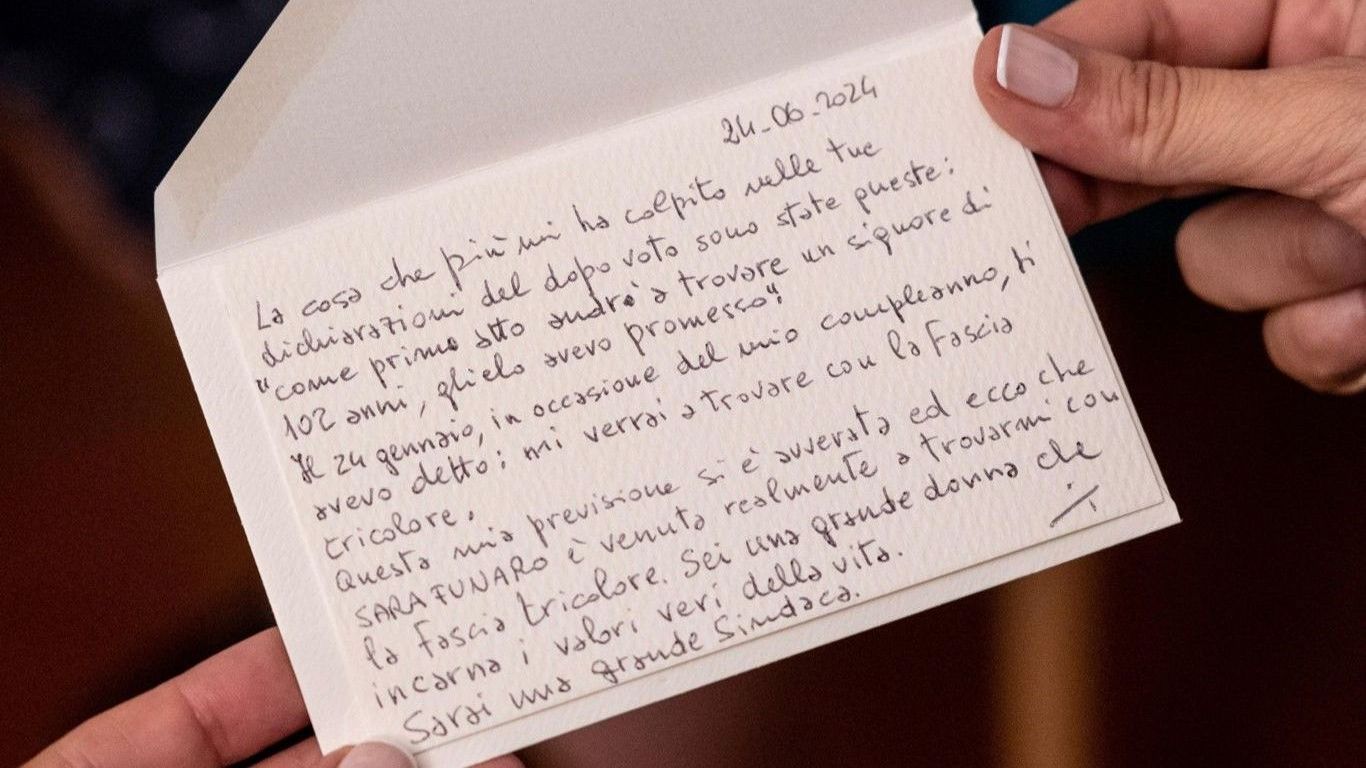 24-06-2024
La cosa che più mi ha colpito nelle tue
dichiarazioni del dopo voto sono state queste:
"come primo atto andrò a trovare un signore di
102 anni, glielo avevo promesso".
Il 24 gennaio, in occasione del mio compleanno, ti
avevo detto: mi verrai a trovare con la fascia
tricolore.
Questa mia previsione si è avverata ed ecco che
SARA FUNARO è venuta realmente a trovarmi con
la fascia tricolore. Sei una grande donna che
incarna i valori veri della vita.
Sarai una grande Sindaca.